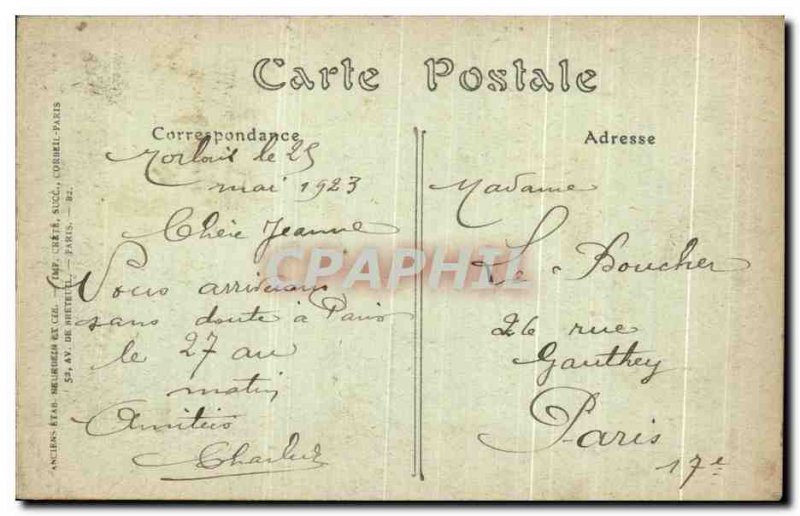 Carte Postale
Correspondance
Adresse
Morlaix le 25
mai 1923
Chère Jeanne
Nous arriverons
sans doute à Paris
le 27 au
matin
Amitiés
Madame
Le Boucher
26 rue
Gauthey
Paris
17e
ANCIENS ETAB. NEURDEIN ET CIE. — IMP. CRÉTÉ, SUCC., CORBEIL-PARIS
52, AV. DE BRETEUIL. — PARIS. — B2.
CPAPHIL